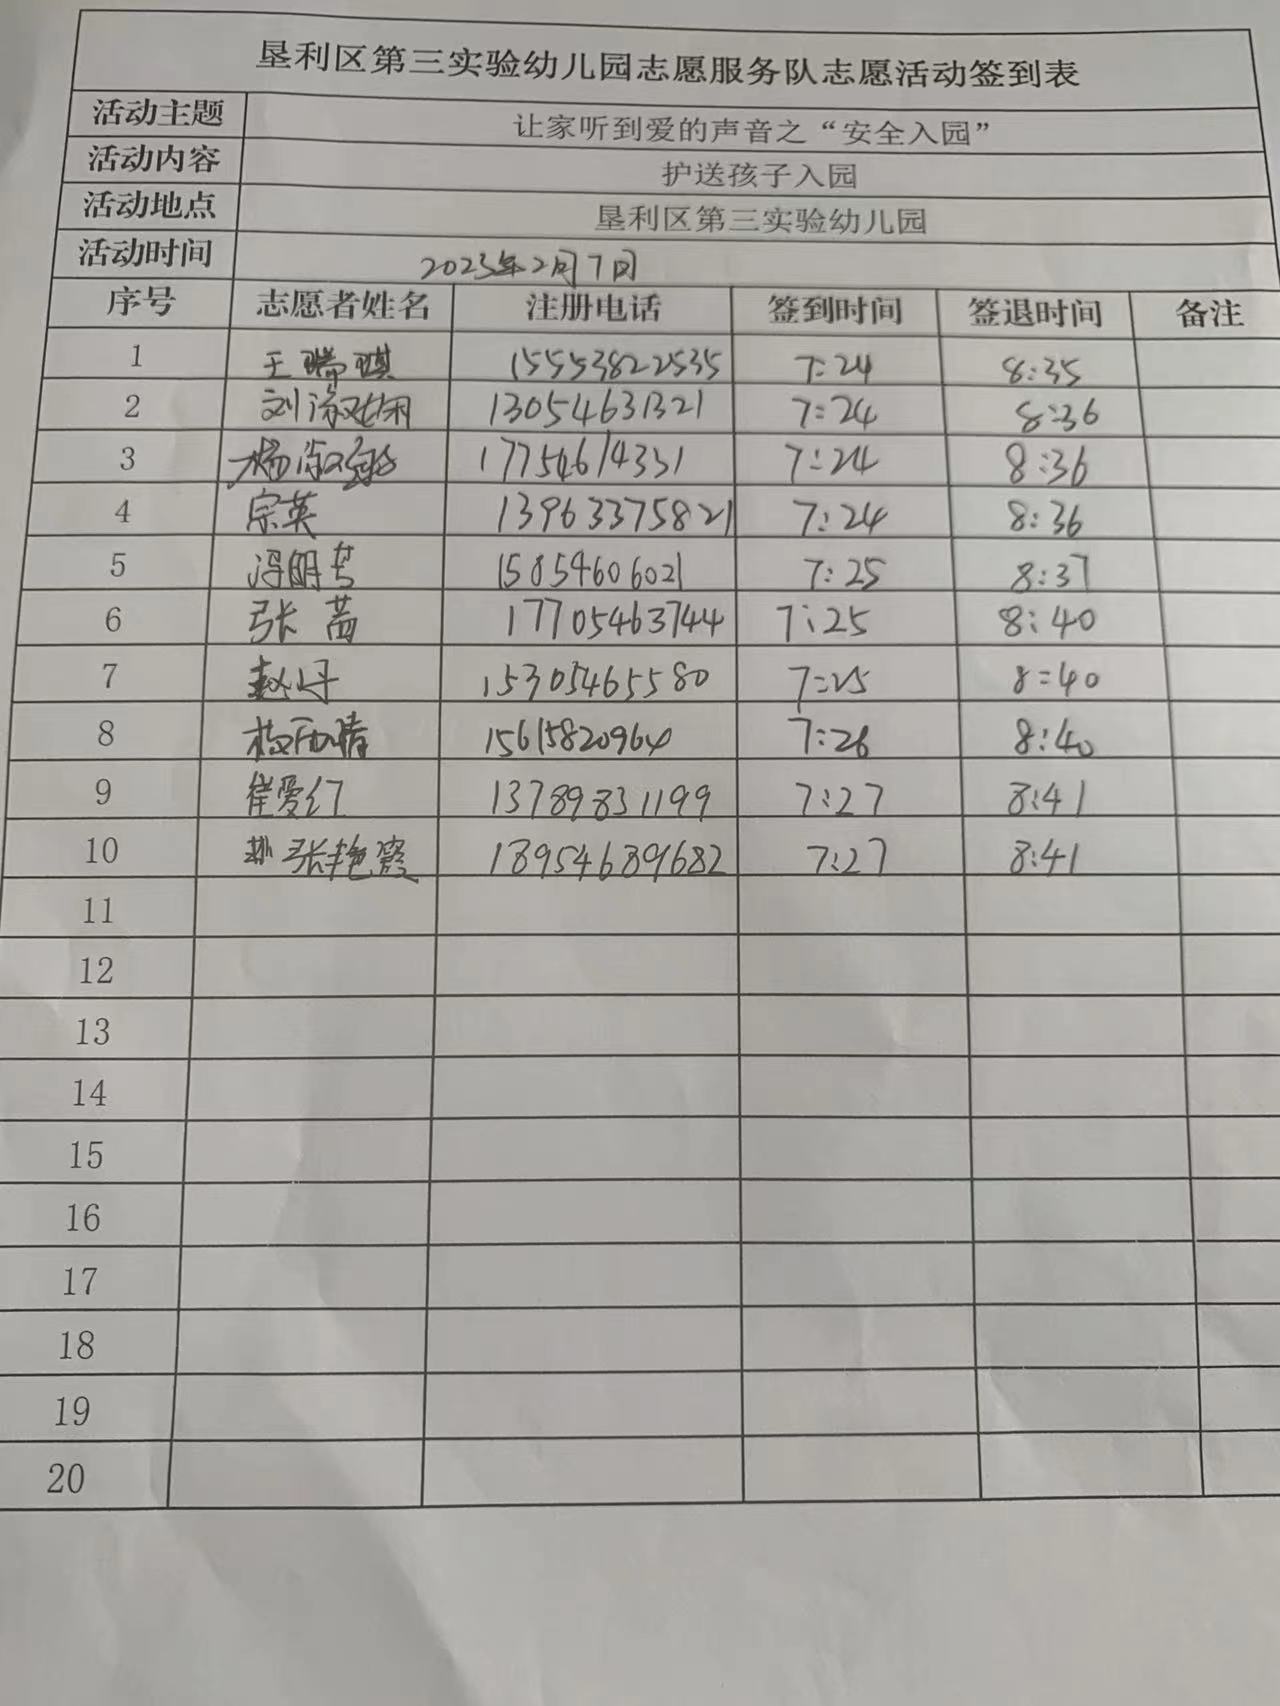 垦利区第三实验幼儿园志愿服务队志愿活动签到表
活动主题 让家听到爱的声音之“安全入园”
活动内容 护送孩子入园
活动地点 垦利区第三实验幼儿园
活动时间 2023年2月7日
序号 志愿者姓名 注册电话 签到时间 签退时间 备注
1 王瑞琪 15553822535 7:24 8:35
2 刘淑娴 13054631321 7:24 8:36
3 杨 17754614331 7:24 8:36
4 宗英 13963375821 7:24 8:36
5 冯明 15854606021 7:25 8:37
6 张茜 17705463744 7:25 8:40
7 赵丹 15305465580 7:25 8:40
8 15615820964 7:26 8:40
9 崔爱红 13789831199 7:27 8:41
10 张艳霞 18954689682 7:27 8:41
11
12
13
14
15
16
17
18
19
20